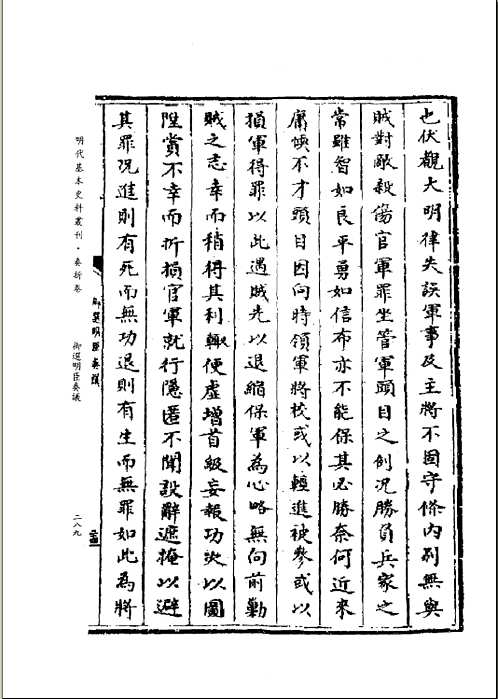 也伏觀大明律失誤軍事及主將不固守條內列無與
賊對敵殺傷官軍罪坐管軍頭目之例況勝負兵家之
常雖智如良平勇如信布亦不能保其必勝奈何近來
庸懦不才頭目因向時領軍將校或以輕進被參或以
損軍得罪以此遇賊先以退縮保軍為心略無向前勦
賊之志幸而稍得其利輒便虛增首級妄報功次以圖
陞賞不幸而折損官軍就行隱匿不聞設辭遮掩以避
其罪況進則有死而無功退則有生而無罪如此為將
御選明臣奏議
明代基本史料叢刊·奏折卷
御選明臣奏議
二八九